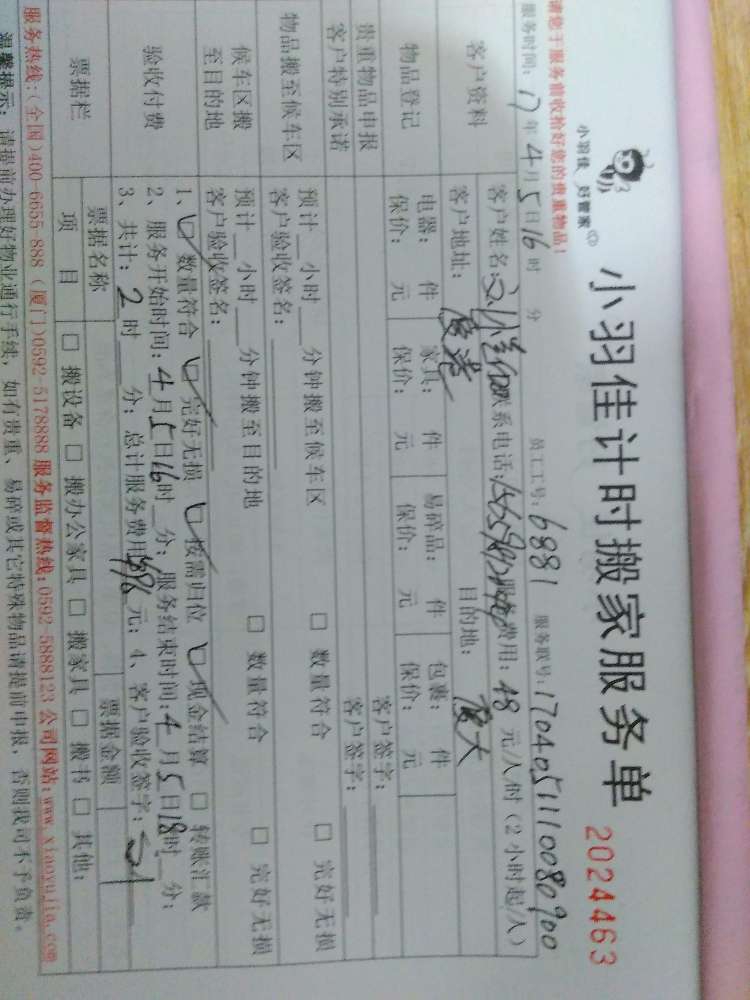 小羽佳 好管家
小羽佳计时搬家服务单 2024463
请您于服务前收拾好您的贵重物品!
员工工号: 6881 服务联号: 1704051110080900
服务时间: 17年4月5日16时 分
客户资料 客户姓名: 联系电话: 服务费用: 48元/人/时(2小时起/人)
客户地址: 目的地: 厦大
物品登记 电器: 件 家具: 件 易碎品: 件 包裹: 件
保价: 元 保价: 元 保价: 元 保价: 元
贵重物品申报 客户签字:
客户特别承诺 客户签字:
物品搬至候车区 预计__小时__分钟搬至候车区 □ 数量符合 □ 完好无损
客户验收签名:
候车区搬至目的地 预计__小时__分钟搬至目的地 □ 数量符合 □ 完好无损
客户验收签名:
验收付费 1、☑ 数量符合 ☑ 完好无损 ☑ 按需归位 ☑ 现金结算 □ 转账汇款
2、服务开始时间: 4月5日16时__分; 服务结束时间: 4月5日18时__分;
3、共计: 2时__分; 总计服务费用 元; 4、客户验收签字:
票据栏 票据名称 票据金额
项 目 □ 搬设备 □ 搬办公家具 □ 搬家具 □ 搬书 □ 其他:
服务热线:(全国)400-6655-888 (厦门)0592-5178888 服务监督热线:0592-5888123 公司网站:www.xiaoyujia.com
温馨提示: 请提前办理好物业通行手续, 如有贵重、易碎或其它特殊物品请提前申报, 否则我司不予负责。